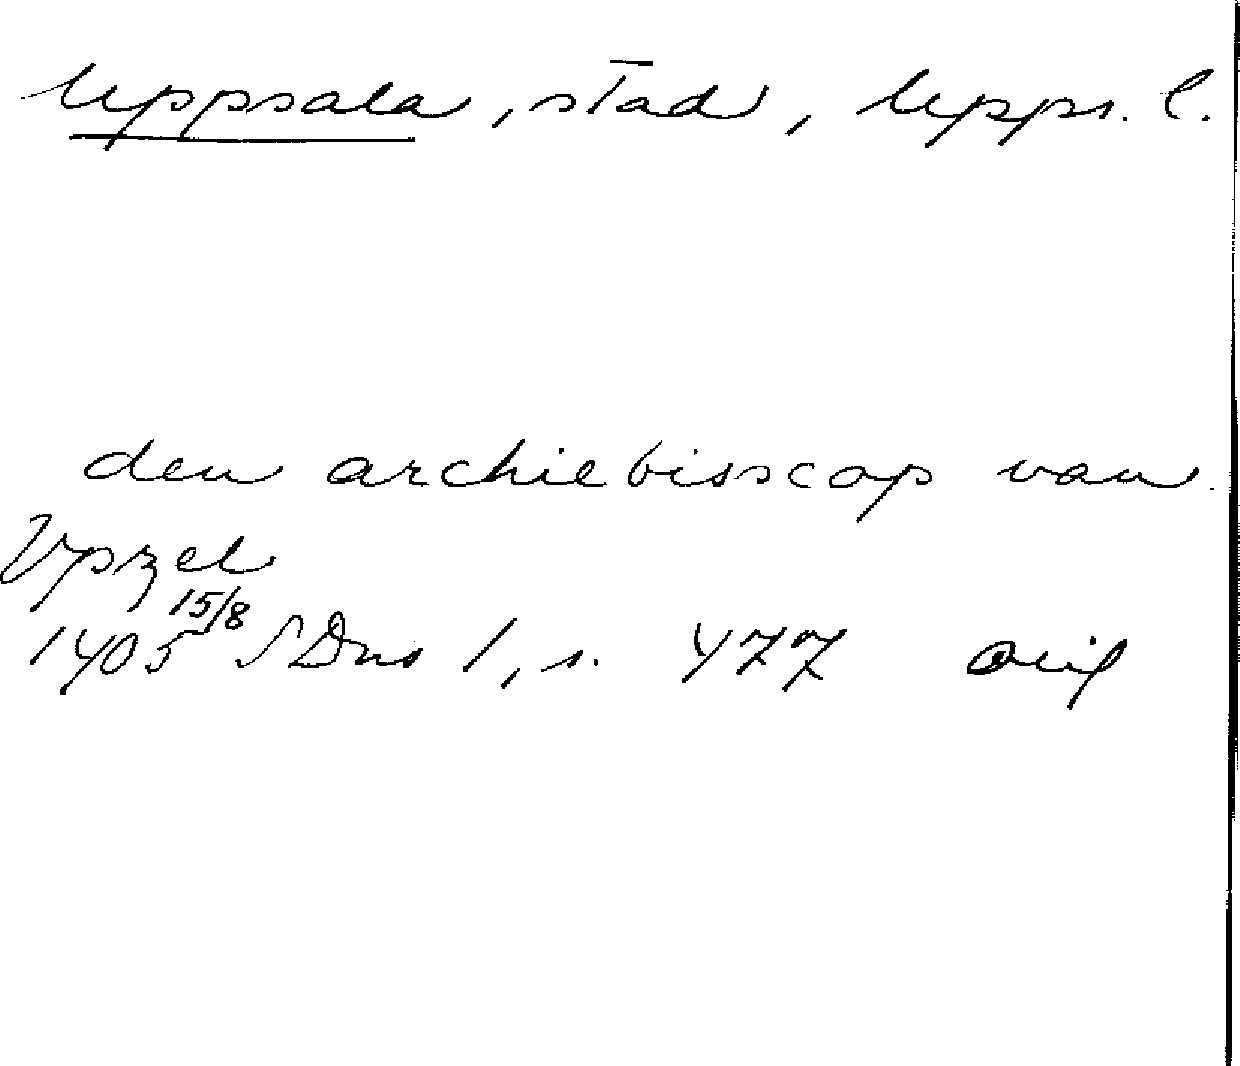 Uppsala, stad, Upps. l.
den archiebisscop van
Vpzel
1405 15/8 SDns 1, s. 477 orig